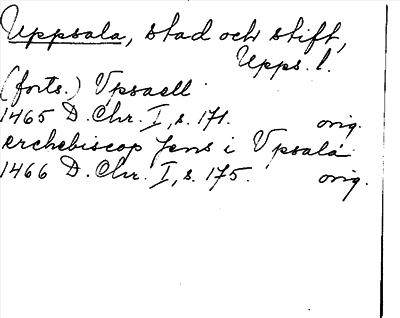 Uppsala, stad och stift,
Upps. l.
(forts.) Vpsaell
1465 D. Chr. I, s. 171. orig.
erchebiscop Jens i Vpsala
1466 D. Chr. I, s. 175. orig.